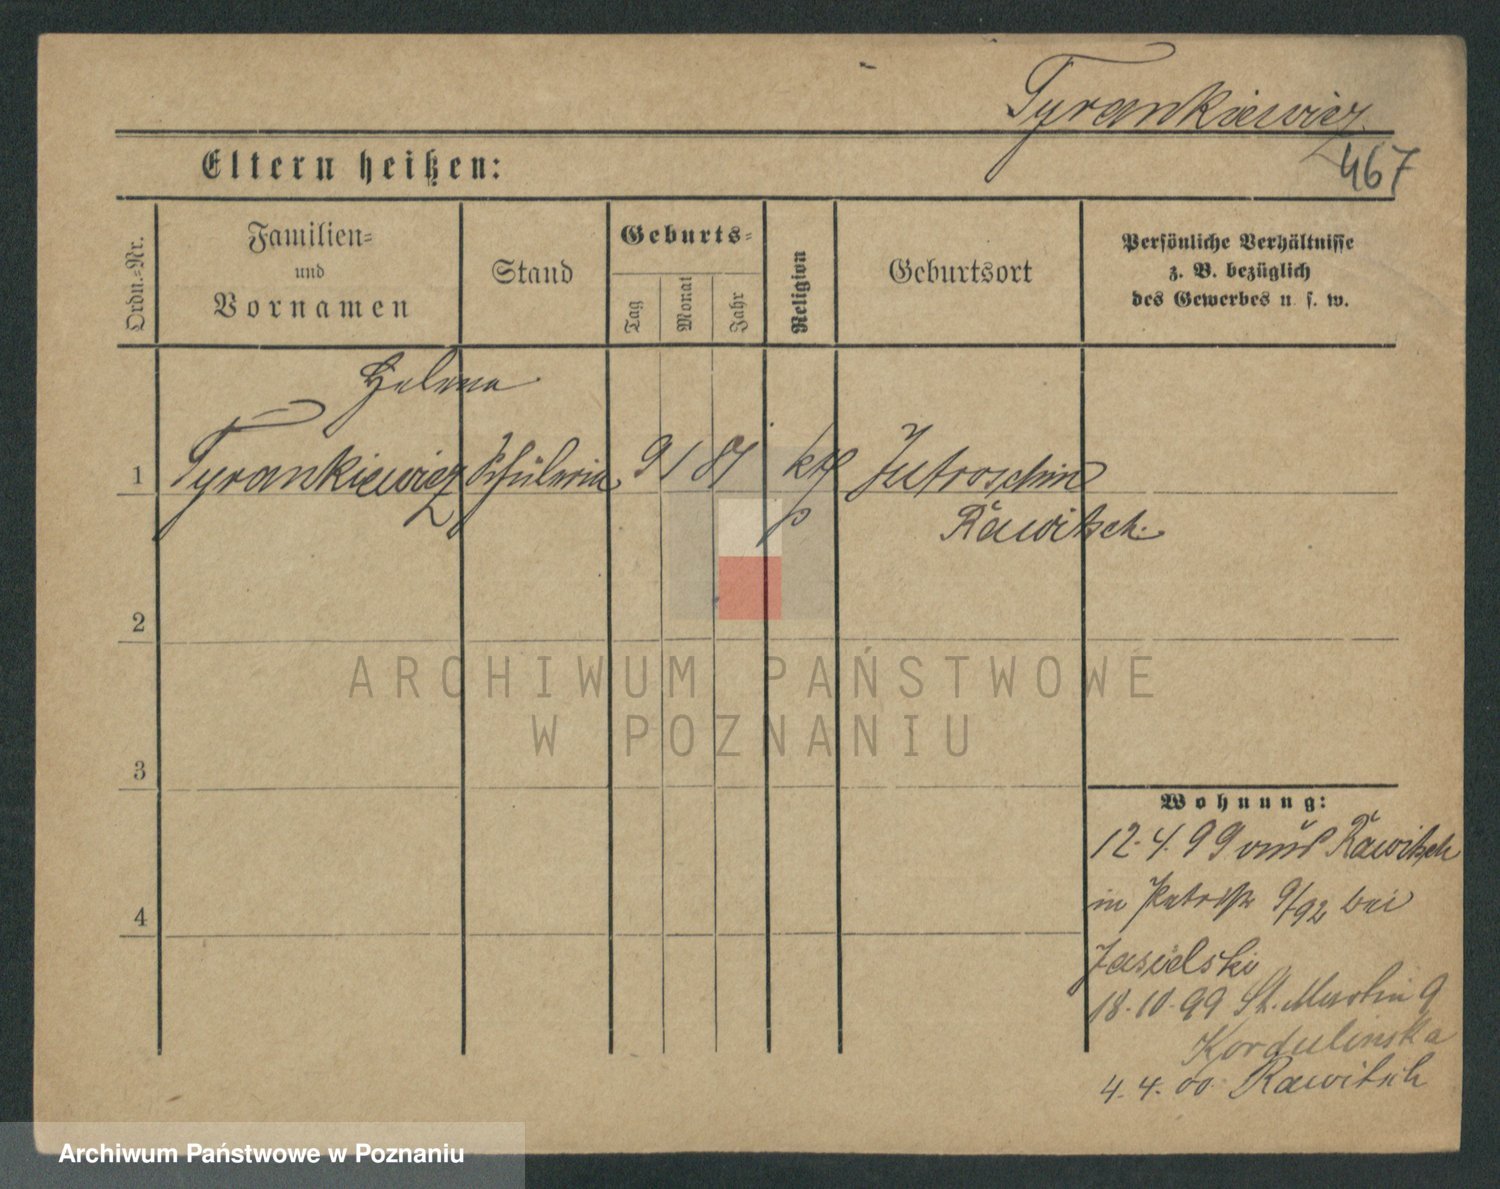 Tyrankiewicz
467
Eltern heißen:
Ordn.-Nr.
Familien-
und
Vornamen
Stand
Geburts-
Tag
Monat
Jahr
Religion
Geburtsort
Persönliche Verhältnisse
z. B. bezüglich
des Gewerbes u. s. w.
Helena
1 Tyrankiewicz Schülerin 9 1 81 kth Jutroschin
Rawitsch
2
3
4
Wohnung:
12.4.99 aus Rawitsch
in 9/92 bei
Jasielski
18.10.99 St. Martin 9
Kordulinska
4.4.00 Rawitsch
ARCHIWUM PAŃSTWOWE
W POZNANIU
Archiwum Państwowe w Poznaniu